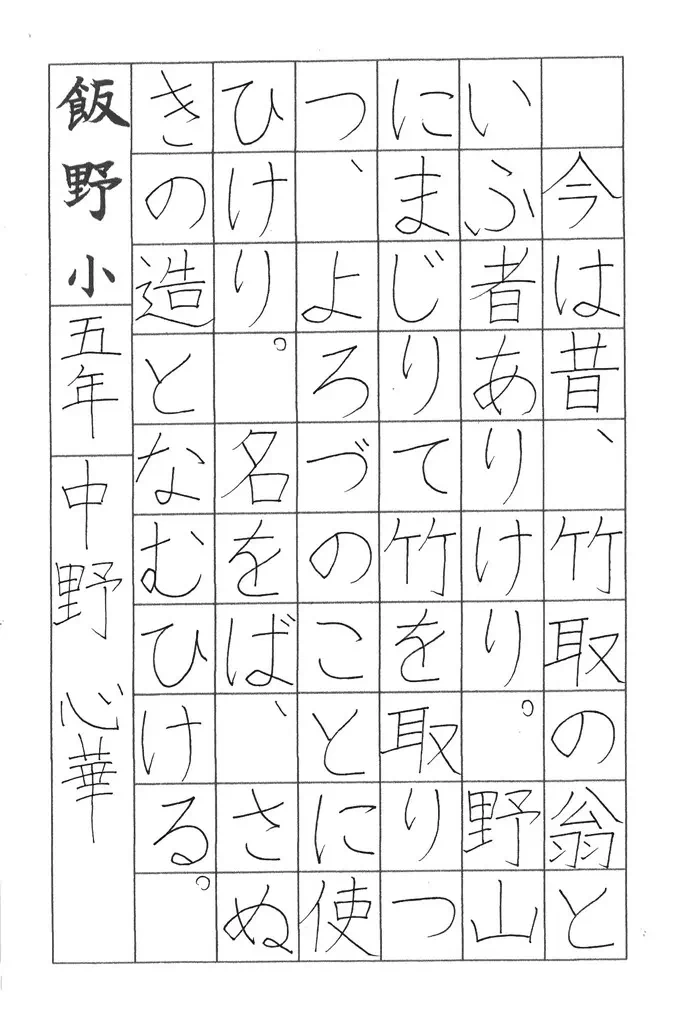 今は昔、竹取の翁と
いふ者ありけり。野山
にまじりて竹を取りつ
つ、よろづのことに使
ひけり。名をば、さぬ
きの造となむひける。
飯野小 五年 中野 心華